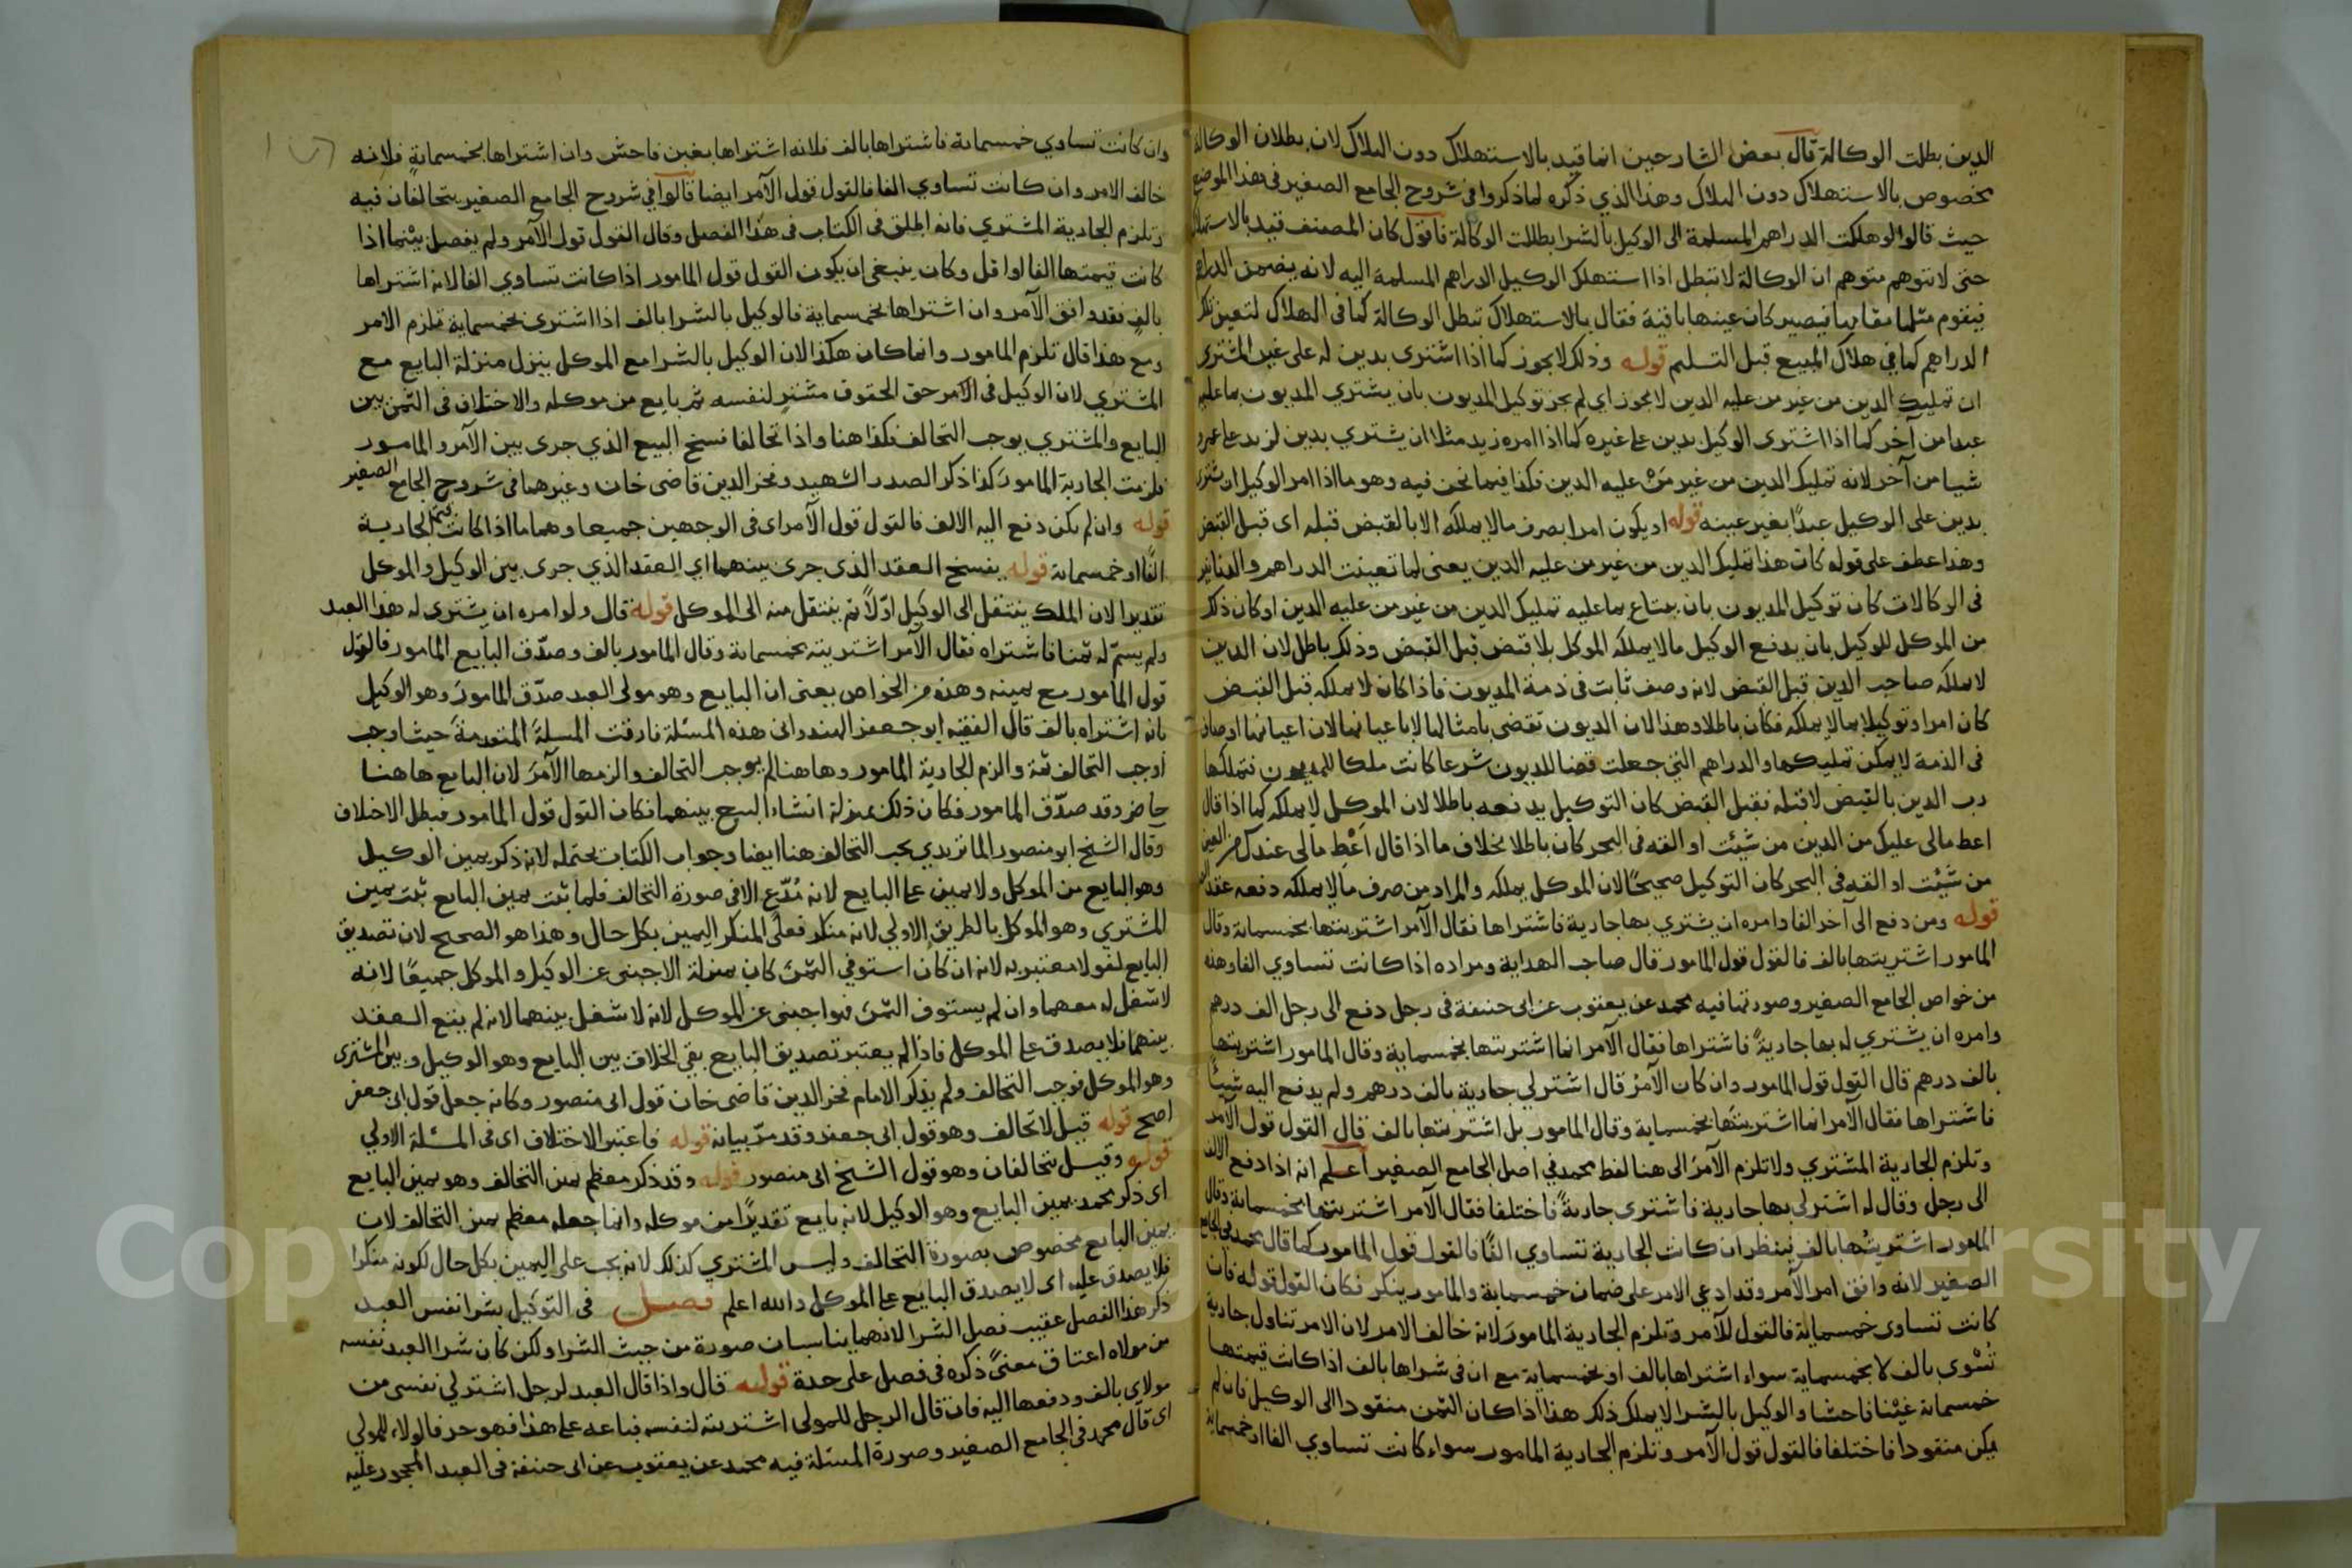 الدين بطلت الوكالة قال بعض الشارحين انما قيد بالاستهلاك دون الهلاك لان بطلان الوكالة
مخصوص بالاستهلاك دون الهلاك وهذا الذي ذكره لما ذكروا في شروح الجامع الصغير في هذا الموضع
حيث قالوا لو هلكت الدراهم المسلمة الى الوكيل بالشرا بطلت الوكالة فاقول كان المصنف قيد بالاستهلاك
حتى لا يتوهم متوهم ان الوكالة لا تبطل اذا استهلك الوكيل الدراهم المسلمة اليه لانه يضمن الدراهم
فيقوم مثلها مقامها فيصير كان عينها باقية فقال بالاستهلاك تبطل الوكالة كما في الهلاك لتعين تلك
الدراهم كما في هلاك المبيع قبل التسليم قوله وذلك لا يجوز كما اذا اشترى بدين له على غير المشترى
ان تمليك الدين من غير من عليه الدين لا يجوز اي لم يجز توكيل المديون بان يشتري المديون بما عليه
عبدا من آخر كما اذا اشترى الوكيل بدين على غيره كما اذا امره زيد مثلا ان يشتري بدين لزيد على عمرو
شيا من آخر لانه تمليك الدين من غير مَنْ عليه الدين فكذا فيما نحن فيه وهو ما اذا امر الوكيل ان يشتري
بدين على الوكيل عبدًا بغير عينه قوله او يكون امرا بصرف مالا يملكه الا بالقبض قبله اى قبل القبض
وهذا عطف على قوله كان هذا تمليك الدين من غير من عليه الدين يعنى لما تعينت الدراهم والدنانير
في الوكالات كان توكيل المديون بان يبتاع بما عليه تمليك الدين من غير من عليه الدين او كان ذلك
من الموكل للوكيل بان يدفع الوكيل مالا يملكه الموكل بلا قبض قبل القبض وذلك باطل لان الدين
لا يملكه صاحب الدين قبل القبض لانه وصف ثابت في ذمة المديون فاذا كان لا يملكه قبل القبض
كان امرا وتوكيلا بما لا يملكه فكان باطلا وهذا لان الديون تقضى بامثالها لا باعيانها لان اعيانها اوصاف
في الذمة لا يمكن تمليكها والدراهم التي جعلت قضا للديون شرعا كانت ملكا للمديون فتملكها
رب الدين بالقبض لا قبله فقبل القبض كان التوكيل بدفعه باطلا لان الموكل لا يملكه كما اذا قال
اعط مالى عليك من الدين من شيئت او القه في البحر كان باطلا بخلاف ما اذا قال اَعْطِ مالى عندك من العين
من شيئت او القه في البحر كان التوكيل صحيحًا لان الموكل يملكه والمراد من صرف مالا يملكه دفعه
قوله ومن دفع الى آخر الفا وامره ان يشتري بها جارية فاشتراها فقال الآمر اشتريتها بخمسماية وقال
المامور اشتريتها بالف فالقول قول المامور قال صاحب الهداية ومراده اذا كانت تساوي الفا وهذه
من خواص الجامع الصغير وصورتها فيه محمد عن يعقوب عن ابى حنيفة في رجل دفع الى رجل الف درهم
وامره ان يشتري له بها جاريةً فاشتراها فقال الآمر انما اشتريتها بخمسماية وقال المامور اشتريتها
بالف درهم قال القول قول المامور وان كان الآمرُ قال اشتر لي جارية بالف درهم ولم يدفع اليه شيئًا
فاشتراها فقال الآمر انما اشتريتَها بخمسماية وقال المامور بل اشتريتها بالف قال القول قول الآمر
وتلزم الجارية المشتري ولا تلزم الآمرَ الى هنا لفظ محمد في اصل الجامع الصغير اعلم انه اذا دفع الالف
الى رجل وقال له اشتر لى بها جارية فاشترى جاريةً فاختلفا فقال الآمر اشتريتها بخمسماية وقال
المامور اشتريتُها بالف ينظر ان كانت الجارية تساوي الفًا فالقول قول المامور كما قال محمد في الجامع
الصغير لانه وافق امر الآمر وقد ادعى الامر على ضمان خمسماية والمامور ينكر فكان القول قوله فان
كانت تساوى خمسماية فالقول للآمر وتلزم الجارية المامورَ لانه خالف الامر لان الامر تناول جارية
تُشْرى بالف لا بخمسماية سواء اشتراها بالف او بخمسماية مع ان في شراها بالف اذا كانت قيمتها
خمسماية غبنا فاحشا والوكيل بالشرا لا يملك ذلك هذا اذا كان الثمن منقودا الى الوكيل فان لم
يكن منقودا فاختلفا فالقول قول الآمر وتلزم الجارية المامور سواء كانت تساوي الفا او خمسماية
وان كانت تساوي خمسماية فاشتراها بالف فلانه اشتراها بغبن فاحش وان اشتراها بخمسمايةٍ فلانه
خالف الامر وان كانت تساوي الفا فالقول قول الآمر ايضا قالوا في شروح الجامع الصغير يتحالفان فيه
وتلزم الجارية المشتري فانه اطلق في الكتاب في هذا الفصل وقال القول قول الآمر ولم يفصل بينما اذا
كانت قيمتها الفا او اقل وكان ينبغى ان يكون القول قول المامور اذا كانت تساوي الفا لانه اشتراها
بالفٍ فقد وافق الآمر وان اشتراها بخمسماية فالوكيل بالشرا بالف اذا اشترى بخمسماية تلزم الامر
ومع هذا قال تلزم المامور وانما كان هكذا لان الوكيل بالشرا مع الموكل ينزل منزلة البايع مع
المشتري لان الوكيل في الآمر حق الحقوق مشترٍ لنفسه ثم بايع من موكله والاختلاف في الثمن بين
البايع والمشتري يوجب التحالف فكذا هنا واذا تحالفا فسخ البيع الذي جرى بين الآمر والمامور
فلزمت الجارية المامورَ كذا ذكر الصدر الشهيد وفخر الدين قاضى خان وغيرهما في شروح الجامع الصغير
قوله وان لم يكن دفع اليه الالف فالقول قول الآمر اى في الوجهين جميعا وهما ما اذا كانت قيمة الجارية
الفًا او خمسماية قوله يفسخ العقد الذى جرى بينهما اي العقد الذي جرى بين الوكيل والموكل
تقديرا لان الملك ينتقل الى الوكيل اوّلًا ثم ينتقل منه الى الموكل قوله قال ولو امره ان يشترى له هذا العبد
ولم يسمّ له ثمنا فاشتراه فقال الآمر اشتريته بخمسماية وقال المامور بالف وصدّق البايع المامور فالقول
قول المأمور مع يمينه وهذه من الخواص يعنى ان البايع وهو مولى العبد صدّق المامورَ وهو الوكيل
بانه اشتراه بالف قال الفقيه ابو جعفر الهندوانى هذه المسئلة فارقت المسلةَ المتقدمةَ حيث اوجب
اوجب التحالف ثمة والزم الجارية المامور وهاهنا لم يوجب التحالف والزمها الآمرَ لان البايع هاهنا
حاضر وقد صدّق المامور فكان ذلك بمنزلة انشاء البيع بينهما فكان القول قول المامور فبطل الاختلاف
وقال الشيخ ابو منصور الماتريدي يجب التحالف هنا ايضا وجواب الكتاب يحتمله لانه ذكر يمين الوكيل
وهو البايع من الموكل ولا يمين على البايع لانه مُدّعٍ الا في صورة التحالف فلما ثبت يمين البايع ثبت يمين
المشتري وهو الموكل بالطريق الاولي لانه منكر فعلى المنكر اليمين بكل حال وهذا هو الصحيح لان تصديق
البايع لغو لا معتبر به لانه ان كان استوفي الثمنَ كان بمنزلة الاجنبى عن الوكيل والموكل جميعًا لانه
لا شغل له معهما وان لم يستوف الثمنَ فهو اجنبى عن الموكل لانه لا شغل بينهما لانه لم يقع العقد
بينهما فلا يصدق على الموكل فاذا لم يعتبر تصديق البايع بقى الخلاف بين البايع وهو الوكيل وبين المشترى
وهو الموكل فوجب التحالف ولم يذكر الامام فخر الدين قاضى خان قول ابى منصور وكانه جعل قول ابى جعفر
اصح قوله قيل لا تحالف وهو قول ابى جعفر وقد مرّ بيانه قوله فاعتبر الاختلاف اى في المسئلة الاولي
قوله وقيل يتحالفان وهو قول الشيخ ابى منصور قوله وقد ذكر معظم يمين التحالف وهو يمين البايع
اى ذكر محمد يمين البايع وهو الوكيل لانه بايع تقديرًا من موكله وانما جعله معظم يمين التحالف لان
يمين البايع مخصوص بصورة التحالف وليس المشتري كذلك لانه يجب على اليمين بكل حال لكونه منكرا
فلا يصدق عليه اى لا يصدق البايع على الموكل والله اعلم فصل في التوكيل بشرا نفس العبد
ذكر هذا الفصل عقيب فصل الشرا لانهما يتناسبان صورة من حيث الشرا ولكن كان شرا العبد نفسه
من مولاه اعتاق معنىً ذكره في فصل على حدة قوله قال واذا قال العبد لرجل اشتر لي نفسى من
مولاى بالف ودفعها اليه فان قال الرجل للمولى اشتريته لنفسه فباعه على هذا فهو حر فالولاء للمولى
اى قال محمد في الجامع الصغير وصورة المسئلة فيه محمد عن يعقوب عن ابى حنيفة في العبد المحجور عليه
Copyright © King Saud University